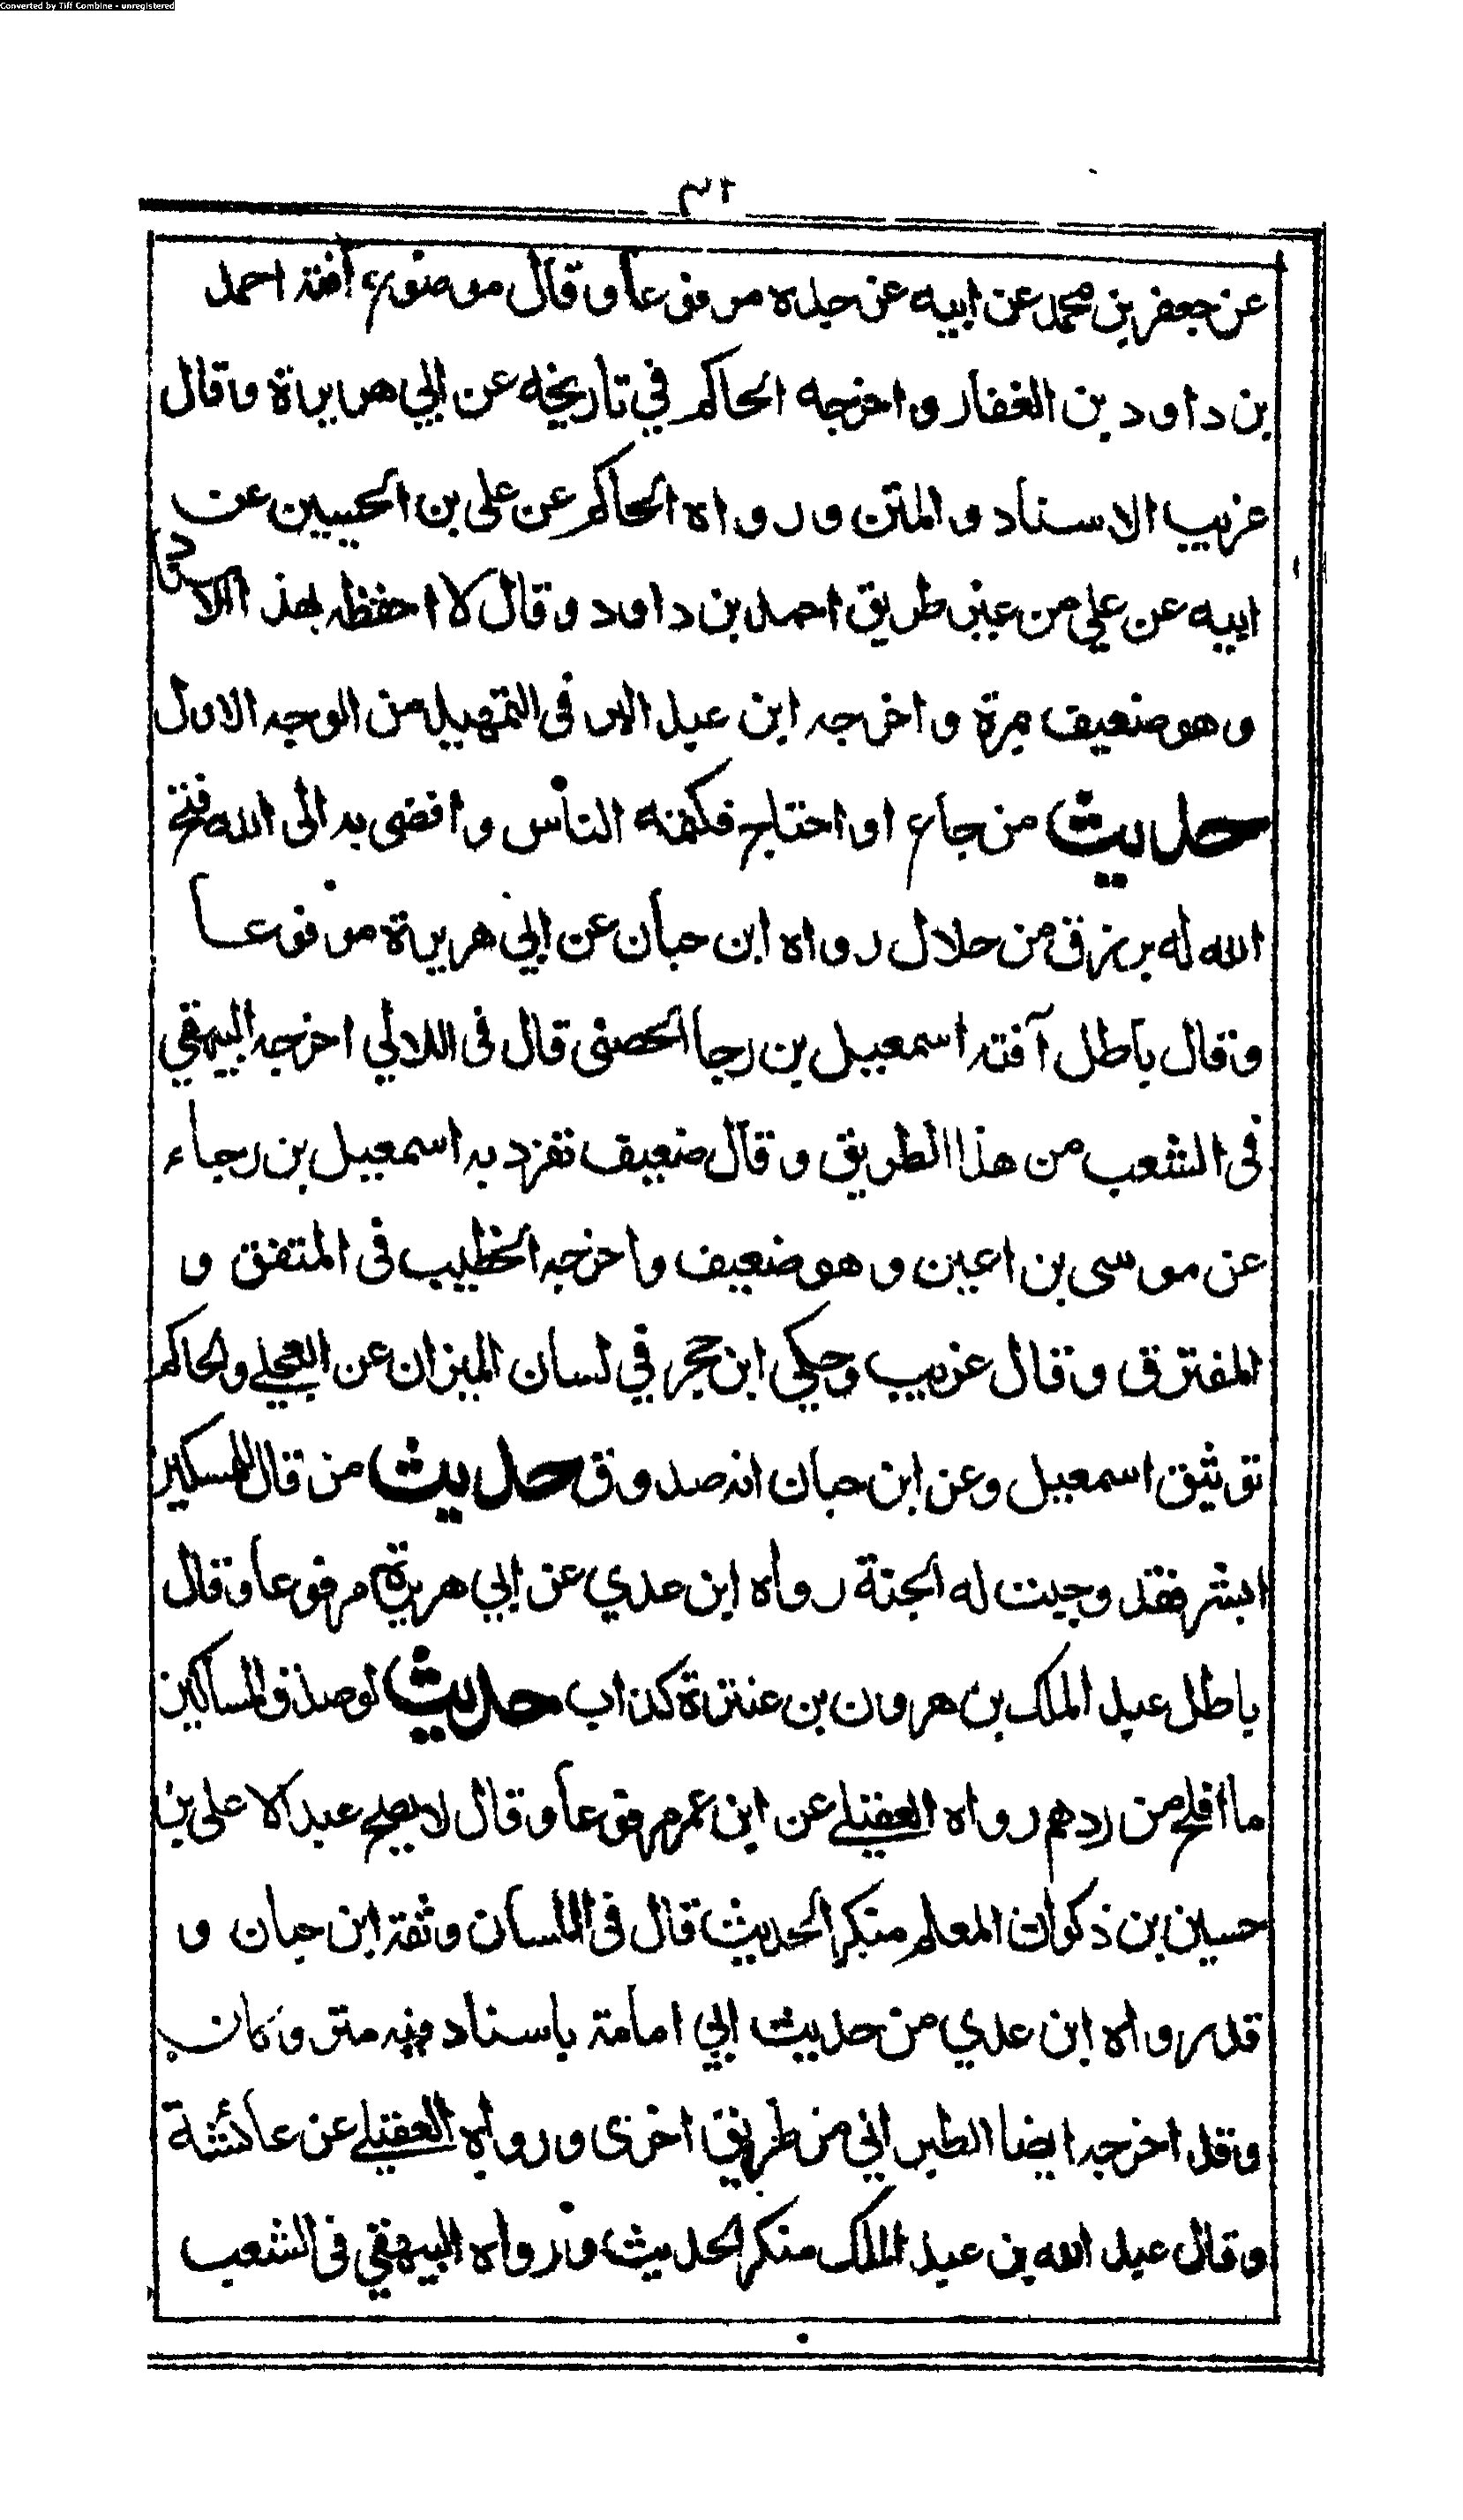 Converted by Tiff Combine - unregistered
عن جعفر بن محمد عن ابيه عن جده مرفوعا وقال موضوع آفته احمد
بن داود بن الغفار واخرجه الحاكم في تاريخه عن ابي هريرة وقال
غريب الاسناد والمتن ورواه الحاكم عن على بن الحسين عن
ابيه عن علي من غير طريق احمد بن داود وقال لا احفظه بهذ الاسناد
وهو ضعيف مرة واخرجه ابن عبد البر فى التمهيد من الوجه الاول
حديث من جاع او احتاج فكتمه الناس وافضى به الى الله فتح
الله له برزق من حلال رواه ابن حبان عن ابي هريرة مرفوعا
وقال باطل آفته اسمعيل بن رجا الحصنى قال فى اللالي اخرجه البيهقي
فى الشعب من هذا الطريق وقال ضعيف تفرد به اسمعيل بن رجاء
عن موسى بن اعين وهو ضعيف واخرجه الخطيب فى المتفق و
المفترق وقال غريب وحكى ابن حجر في لسان الميزان عن العجلي والحاكم
توثيق اسمعيل وعن ابن حبان انه صدوق حديث من قال للمسكين
ابشر فقد وجبت له الجنة رواه ابن عدي عن ابي هريرة مرفوعا وقال
باطل عبد الملك بن هرون بن عنترة كذاب حديث لو صدق المساكين
ما افلح من ردهم رواه العقيلي عن ابن عمر مرفوعا وقال لا يصح عبد الاعلى بن
حسين بن ذكوان المعلم منكر الحديث قال فى اللسان وثقه ابن حبان و
قد رواه ابن عدي من حديث ابي امامة باسناد فيه متروكان
وقد اخرجه ايضا الطبراني من طريق اخرى ورواه العقيلي عن عائشة
وقال عبد الله بن عبد الملك منكر الحديث ورواه البيهقي فى الشعب